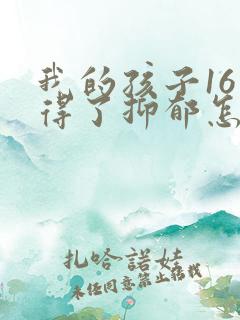 我的孩子16
得了抑郁怎
扎哈諾娃
未经同意禁止搬载